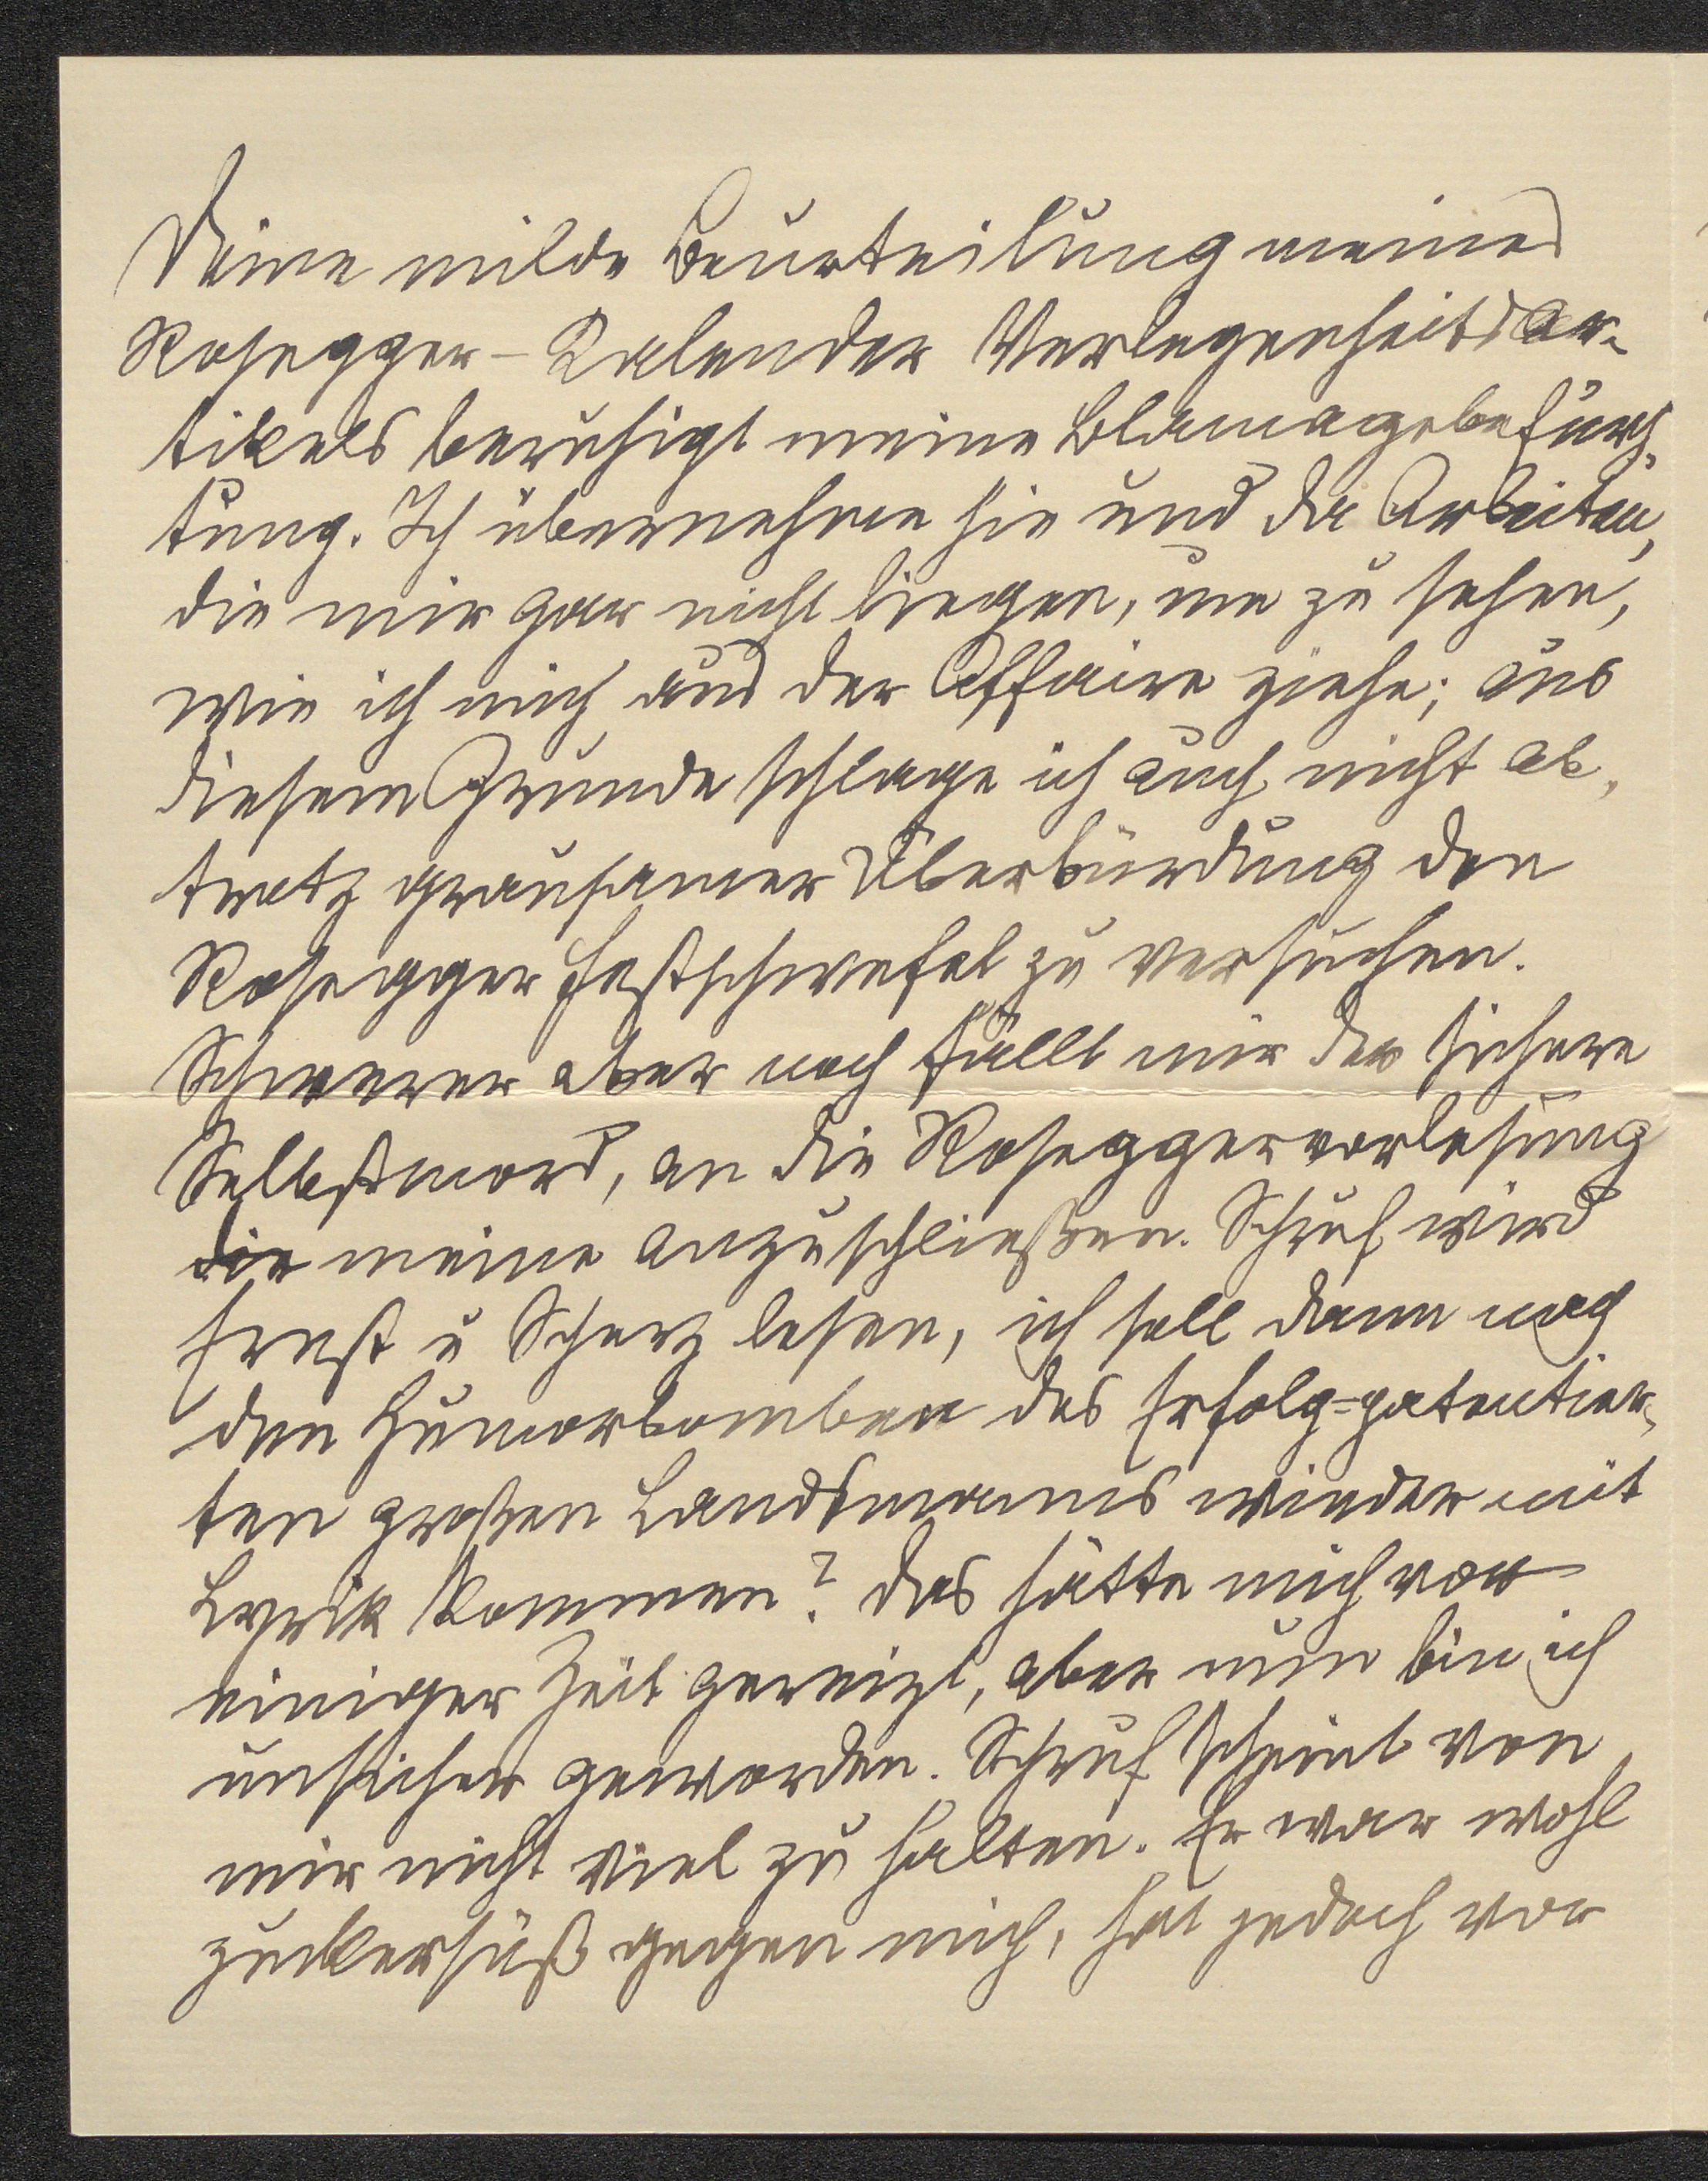 Deine milde Beurteilung meines
Rosegger-Kalender Verlegenheitsar-
tikels beruhigt meine Blamagebefürch-
tung. Ich übernehme sie und die Arbeiten,
die mir gar nicht liegen, um zu sehen,
wie ich mich aus der Affaire ziehe; aus
diesem Grunde schlage ich auch nicht ab,
trotz grausamer Überbürdung den
Rosegger Festschwefel zu versuchen.
Schwerer aber noch fällt mir der sichere
Selbstmord, an die Roseggervorlesung
die meine anzuschließen. Schruf wird
Ernst u Scherz lesen, ich soll dann nach
den Humorbomben des Erfolg=patentier-
ten großen Landsmanns wieder mit
Lyrik kommen? Das hätte mich vor
einiger Zeit gereizt, aber nun bin ich
unsicher geworden. Schruf scheint von
mir nicht viel zu halten. Er war wohl
zuckersüß gegen mich, hat jedoch vor